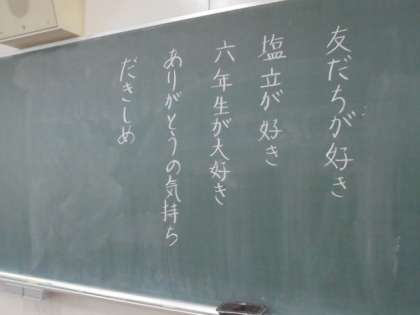 友だちが好き
塩立が好き
六年生が大好き
ありがとうの気持ち
だきしめ